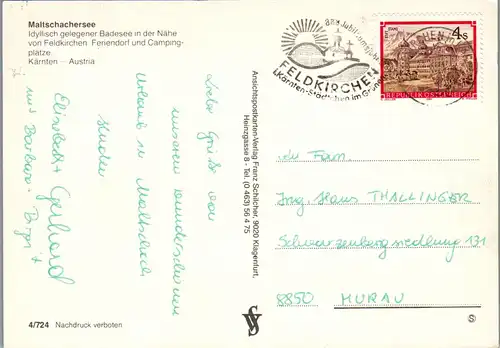 Maltschachersee
Idyllisch gelegener Badesee in der Nähe
von Feldkirchen. Feriendorf und Camping-
plätze.
Kärnten – Austria
Liebe Grüße von
unserem wunderschönen
Urlaub in Maltschach
senden
Elisabeth + Gerhard
und Barbara, Birgit
4/724 Nachdruck verboten
Ansichtspostkarten-Verlag Franz Schilcher, 9020 Klagenfurt,
Heinzgasse 8 - Tel. (0 463) 56 4 75
FELDKIRCHEN
i.Kärnten-Städtchen im Grünen
4s
REPUBLIK ÖSTERREICH
An Fam.
Ing. Hans THALLINGER
Schwarzenbergsiedlung 131
8850 MURAU